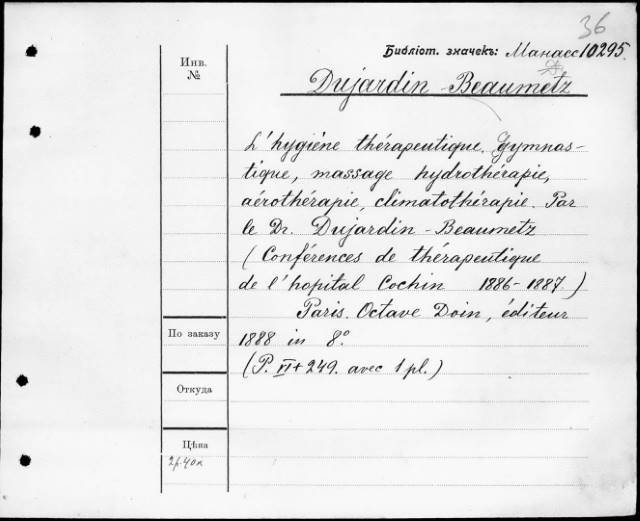 36
Библіот. значекъ: Манаес 10295.
Инв. №
Dujardin-Beaumetz
L'hygiène thérapeutique. Gymnas-
tique, massage hydrothérapie,
aérothérapie, climatothérapie. Par
le Dr. Dujardin-Beaumetz
(Conférences de thérapeutique
de l'hopital Cochin 1886-1887.)
Paris. Octave Doin, éditeur
По заказу
1888 in 8.°
(P. VI+249. avec 1 pl.)
Откуда
Цѣна
2р.40к